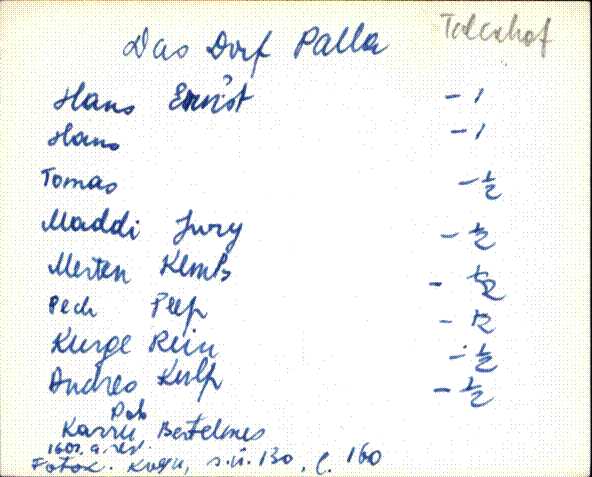 Talkhof
Das Dorf Palla
Hans Ernst - 1
Hans - 1
Tomas - ½
Maddi Jury - ½
Merten Klemb - ½
Pech Peep - ½
Kurge Rein - ½
Andres Kulp - ½
Karru Bertelmes
1601. a. rev.
Fotok. kogu, s.ü. 130, l. 160